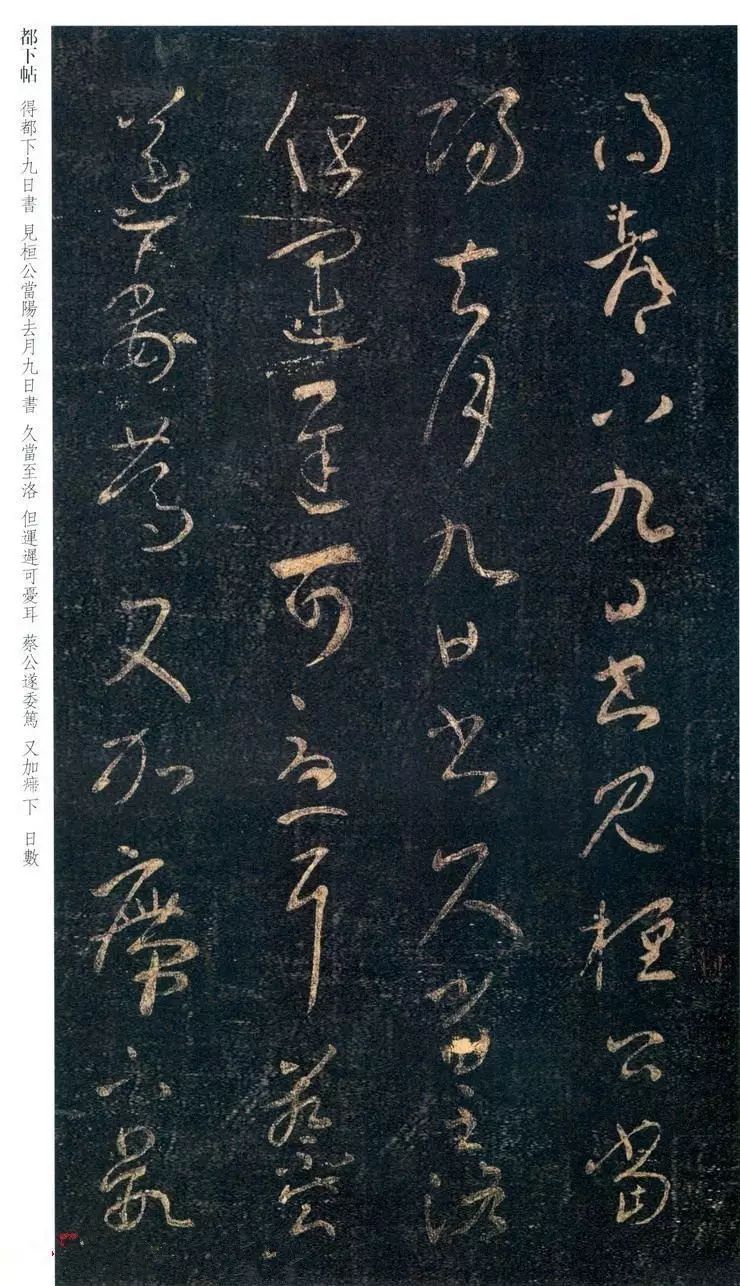 得都下九日書見桓公當
陽去月九日書久當至洛
但運遲可憂耳蔡公
遂委篤又加廗下日數
都下帖 得都下九日書 見桓公當陽去月九日書 久當至洛 但運遲可憂耳 蔡公遂委篤 又加廗下 日數